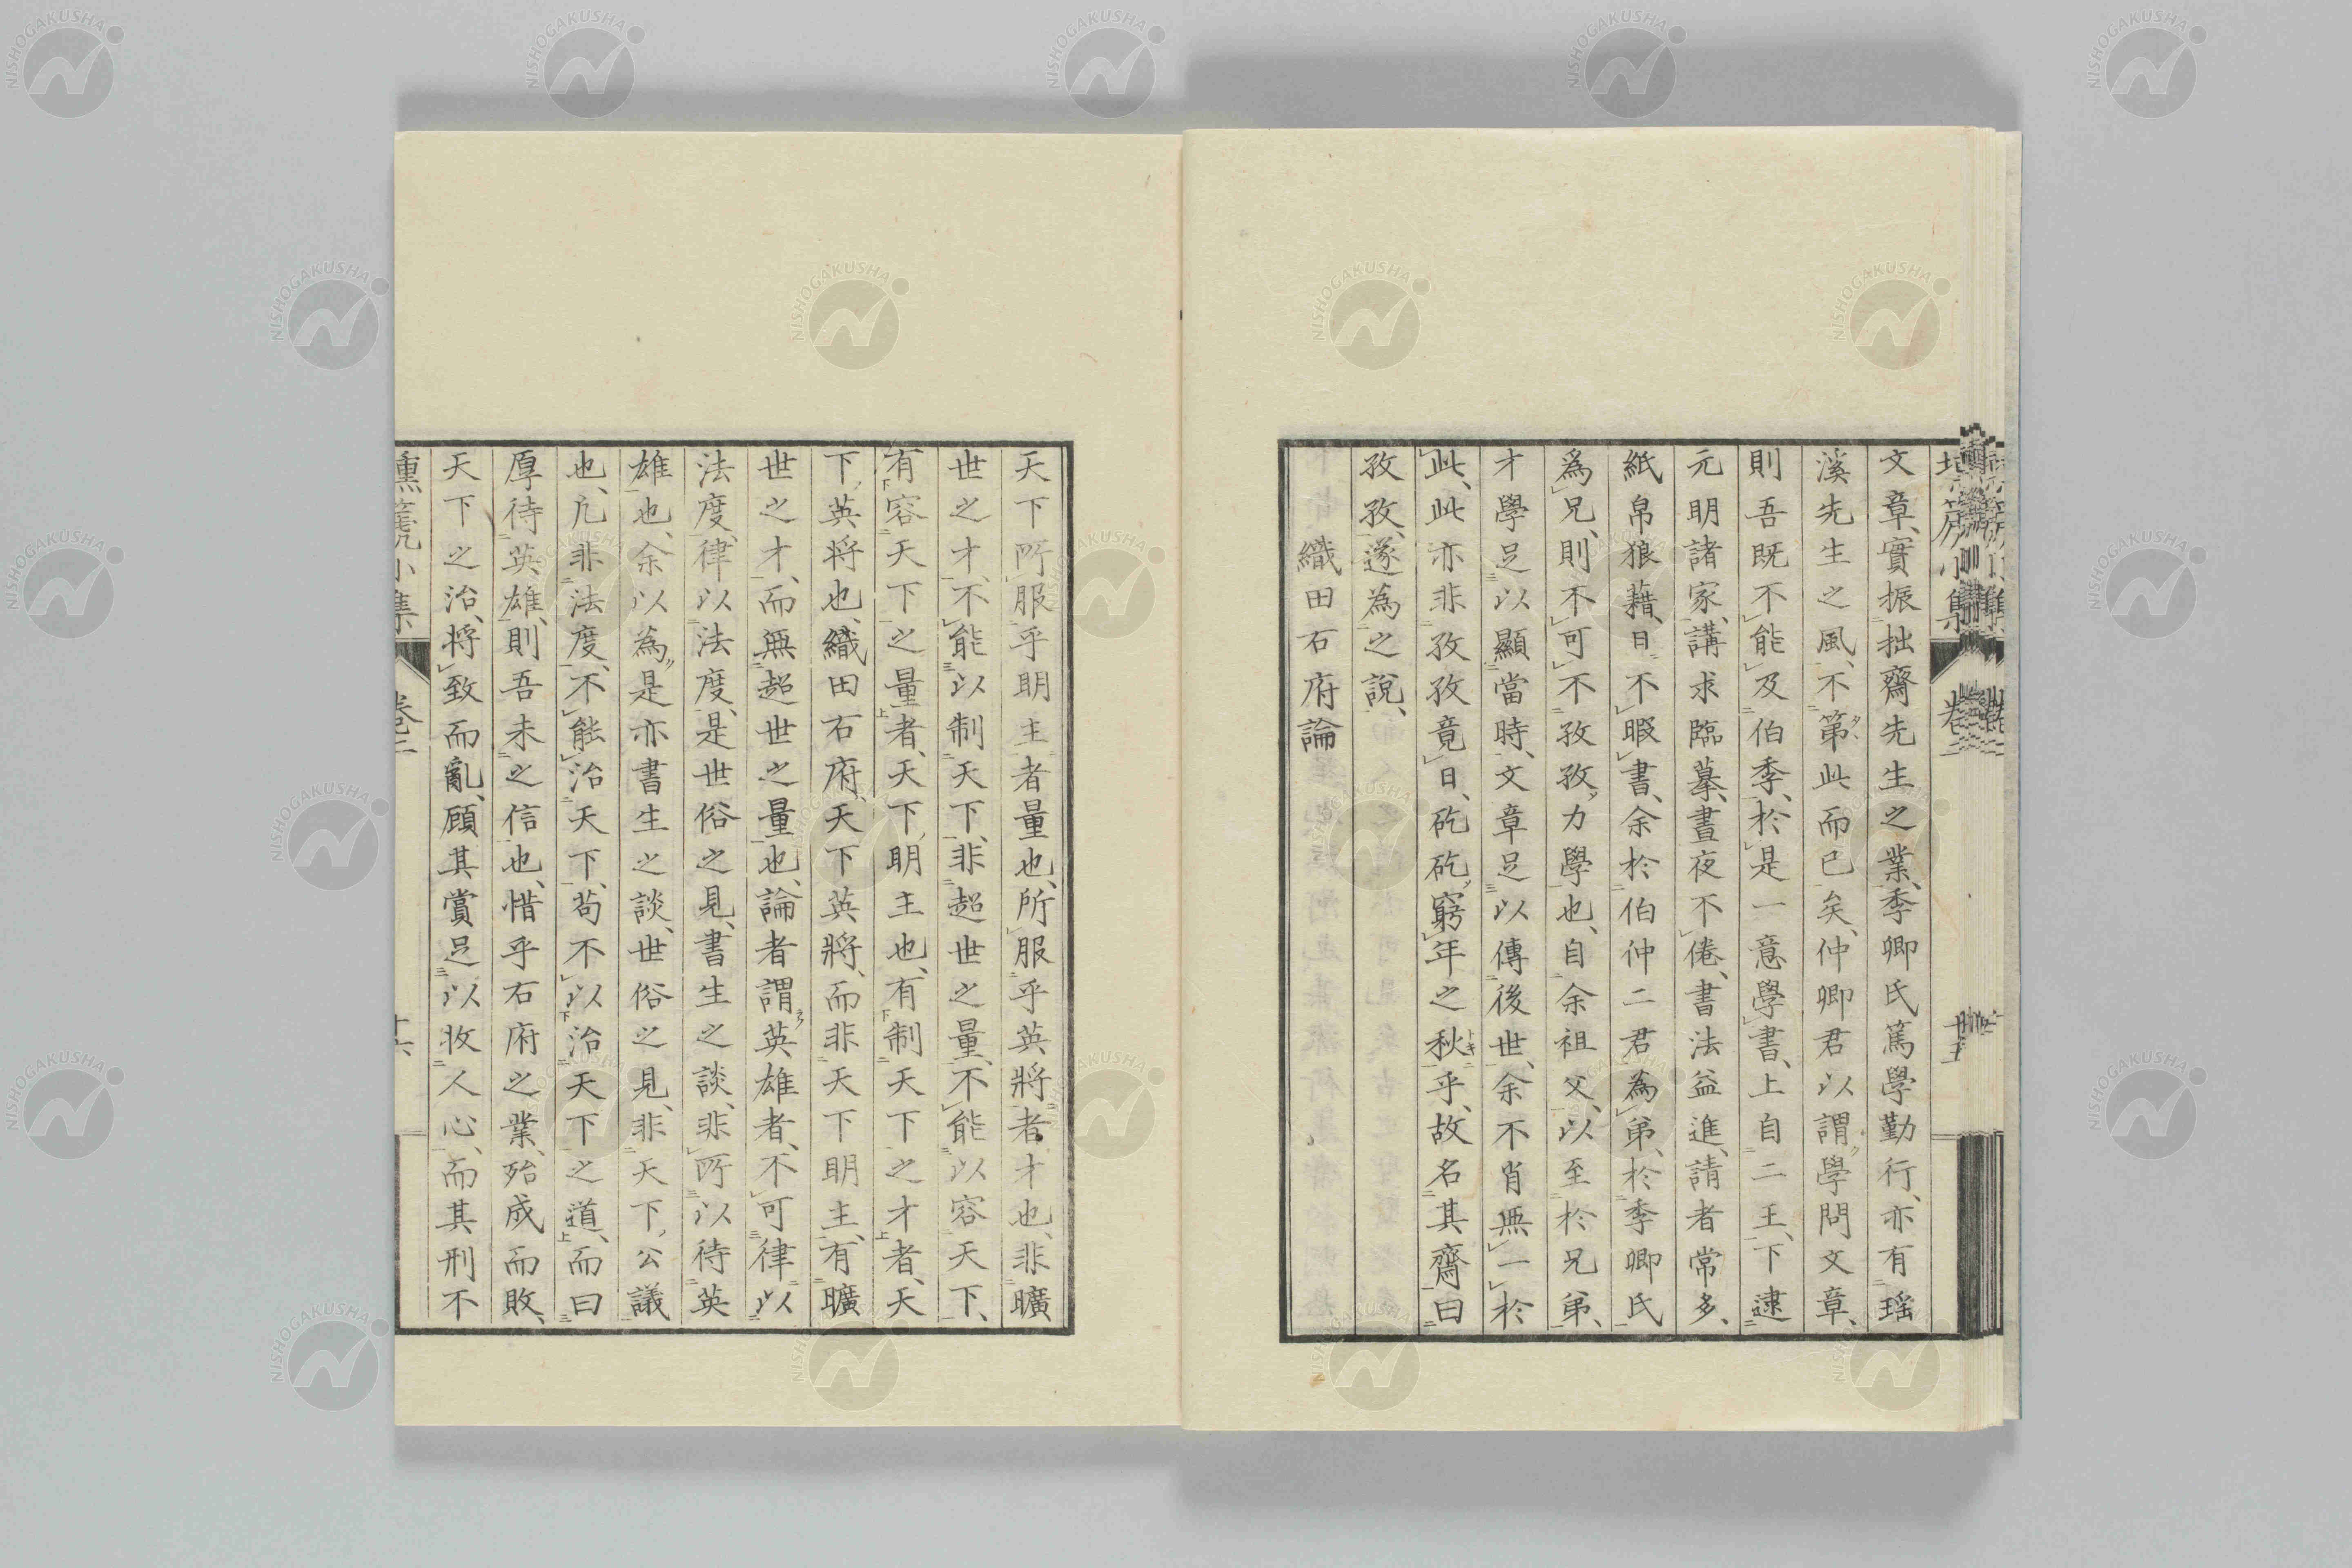 文章、實振拙齋先生之業、季卿氏篤學勤行、亦有瑶
溪先生之風、不第此而已矣、仲卿君以謂學問文章、
則吾既不能及伯季、於是一意學書、上自二王、下逮
元明諸家、講求臨摹、晝夜不倦、書法益進、請者常多、
紙帛狼藉、日不暇書、余於伯仲二君為弟、於季卿氏
爲兄、則不可不孜孜力學也、自余祖父、以至於兄弟、
才學足以顯當時、文章足以傳後世、余不肖無一於
此、此亦非孜孜竟日、矻矻窮年之秋乎、故名其齋曰
孜孜、遂為之說、
織田右府論
天下所服乎明主者量也、所服乎英將者才也、非曠
世之才、不能以制天下、非超世之量、不能以容天下、
有容天下之量者、天下明主也、有制天下之才者、天
下英將也、織田右府、天下英將、而非天下明主、有曠
世之才、而無超世之量也、論者謂英雄者、不可律以
法度、律以法度、是世俗之見、書生之談、非所以待英
雄也、余以為是亦書生之談、世俗之見、非天下公議
也、凡非法度、不能治天下、苟不以治天下之道、而曰
厚待英雄、則吾未之信也、惜乎右府之業、殆成而敗、
天下之治、將致而亂、顧其賞足以收人心、而其刑不
壎篪小集
卷二
十六
NISHOGAKUSHA